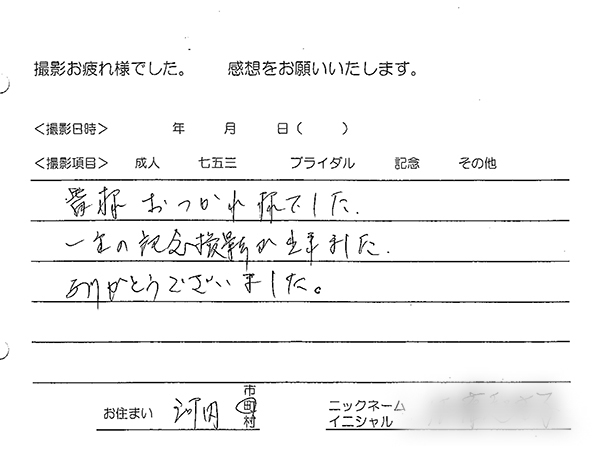 撮影お疲れ様でした。 感想をお願いいたします。
<撮影日時> 年 月 日( )
<撮影項目> 成人 七五三 ブライダル 記念 その他
皆様おつかれ様でした.
一生の記念撮影が出来ました.
ありがとうございました。
お住まい 河内 市町村
ニックネーム
イニシャル